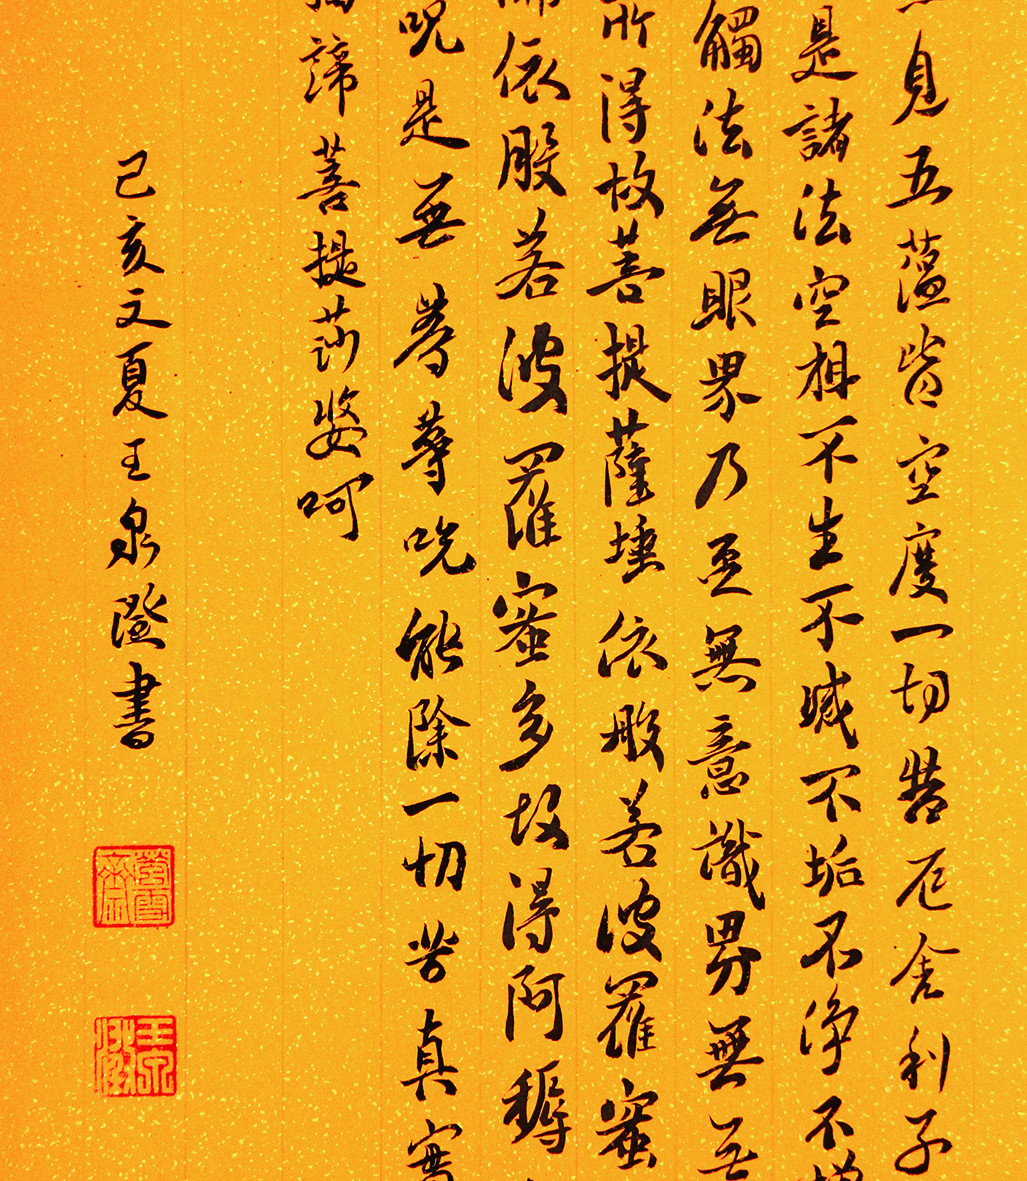 見五蘊皆空度一切苦厄舍利子
是諸法空相不生不滅不垢不净不增
觸法無眼界乃至無意識界無無
所得故菩提薩埵依般若波羅蜜
依般若波羅蜜多故得阿耨
呪是無等等呪能除一切苦真實
諦菩提莎婆呵
己亥之夏王泉澄書